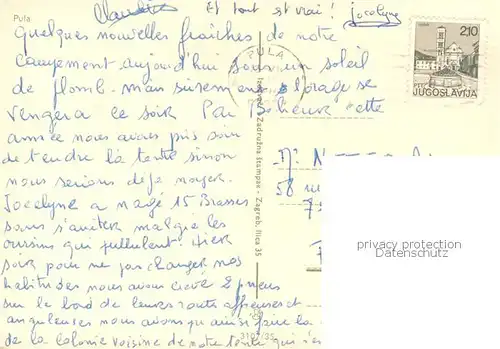 Claudie
Et tout est vrai ! Jocelyne
Pula
Quelques nouvelles fraîches de notre
campement aujourd'hui sous un soleil
de plomb. mais surement l'orage se
vengera ce soir Par Bonheur cette
année nous avons pris soin
de tendre la tente sinon
nous serions déjà noyer.
Jocelyne a nagé 15 Brasses
sans s'arrêter malgré les
oursins qui pullulent. Hier
soir pour ne pas changer nos
habitudes nous avons crevé 2 pneus
sur le bord de leurs routes affreuses et
anguleuses nous avons pu ainsi faire la
de la colonie voisine de notre tente qui s'es
PULA
2,10
JUGOSLAVIJA
Zadružna štampa - Zagreb, Ilica 35
3107/35
58 ru
7
privacy protection
Datenschutz